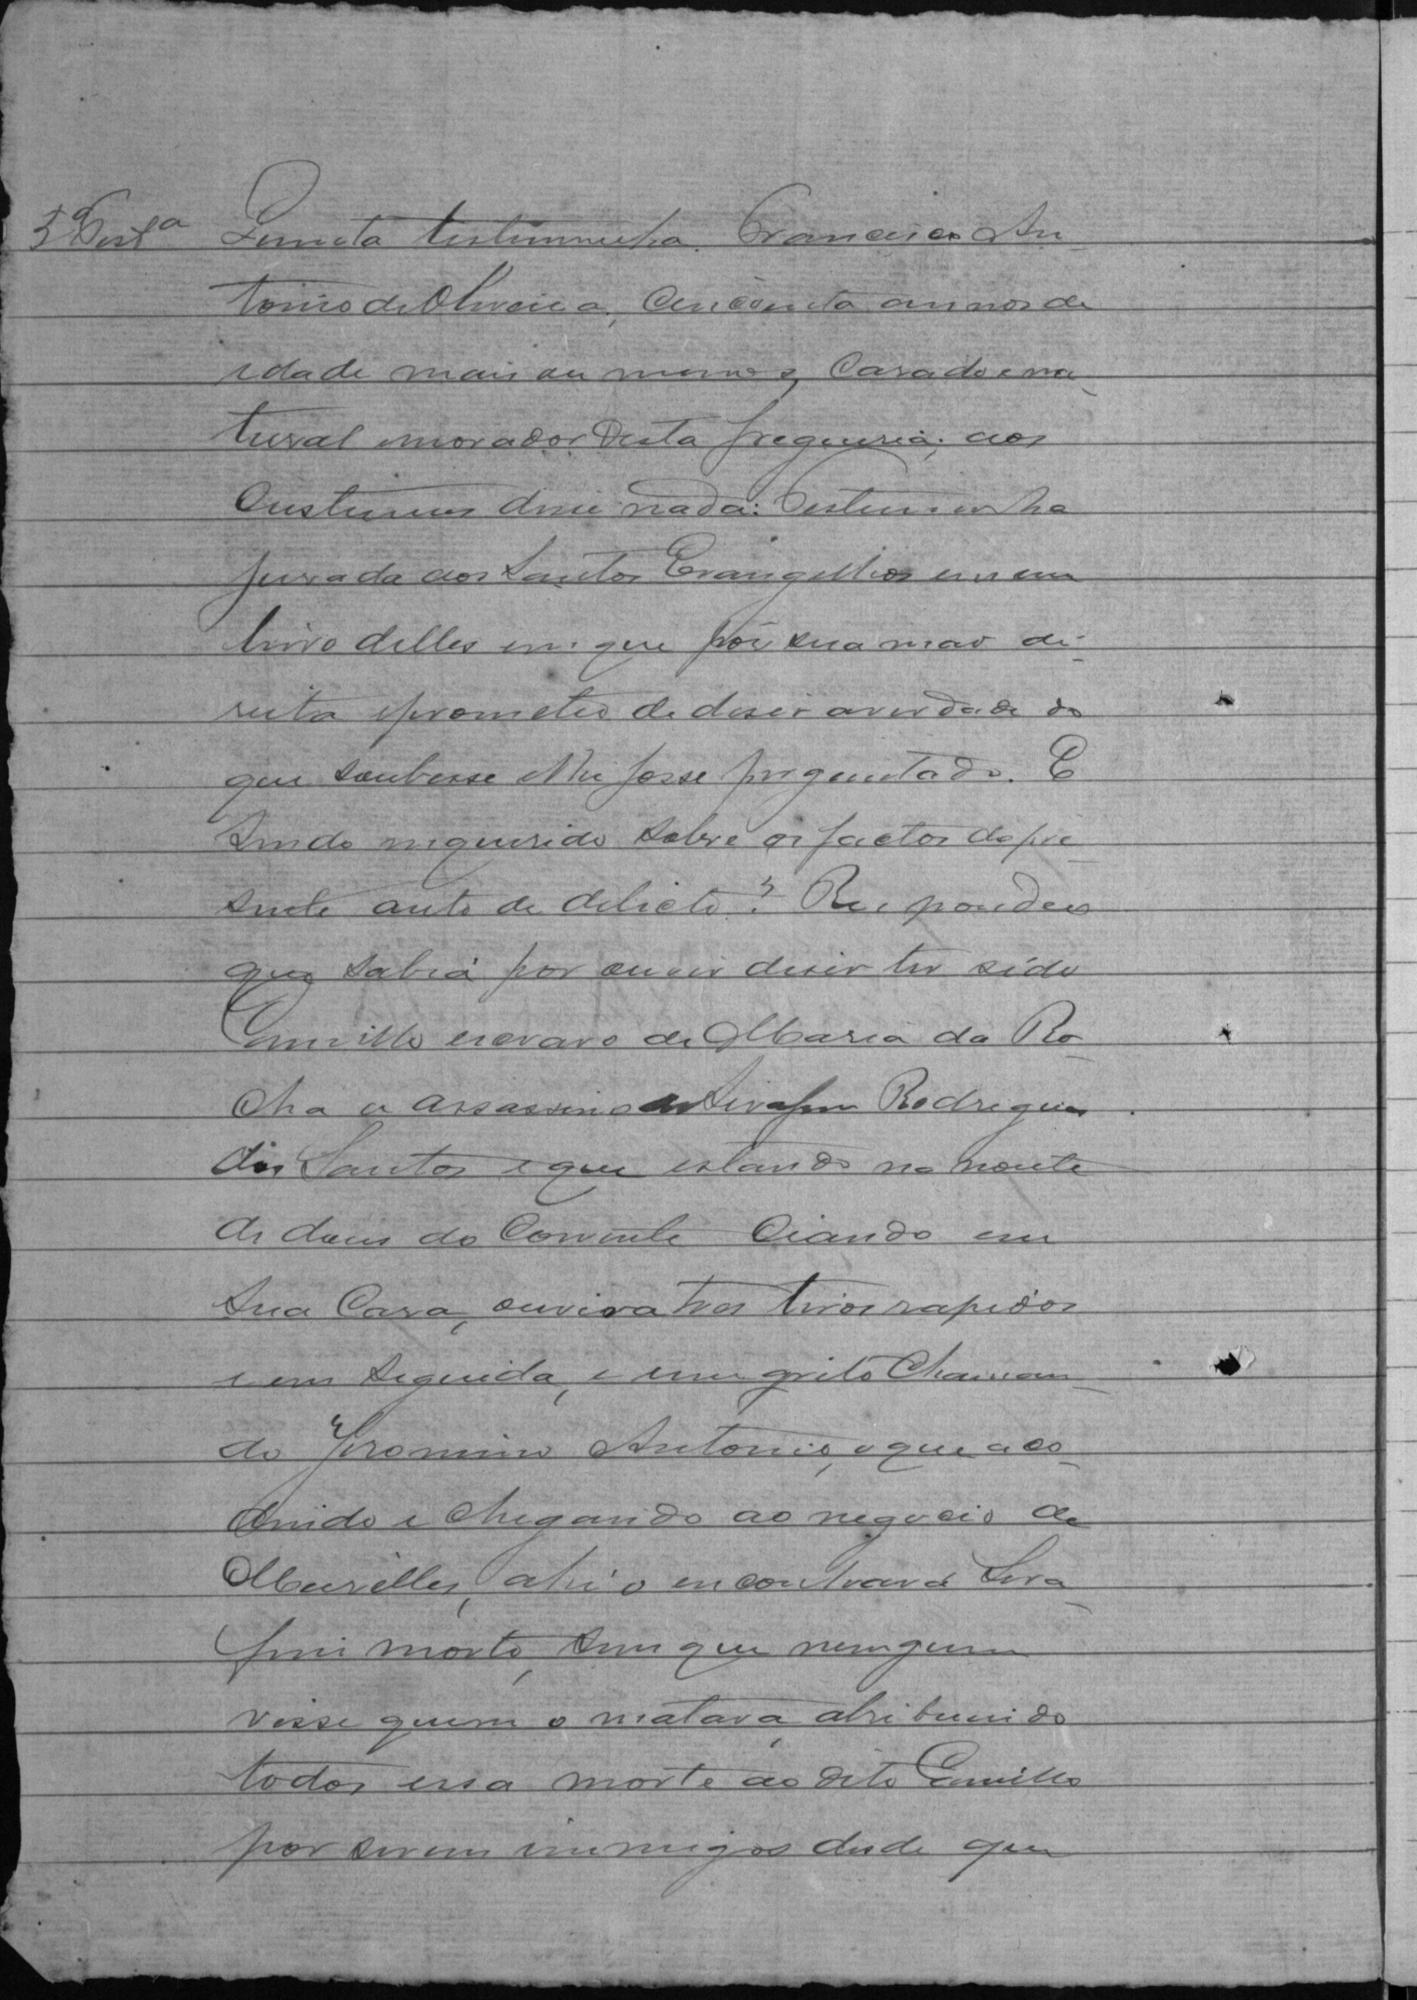 5ª Testª Quinta testimunha. Francisco An-
tonio de Oliveira, cincoenta annos de
idade mais ou menos, casado e na-
tural e morador desta freguesia; aos
custumes disse nada: Testimunha
jurada aos Santos Evangelhos em um
livro delles em que pôs sua mão di-
reita e prometeo de diser a verdade do
que soubesse e lhe fosse preguntado. E
sendo inquerido sobre os factos do pre-
sente auto de delicto? Respondeo
que sabia por ouvir diser ter sido
Camillo escravo de Maria da Ro-
cha o assassino de Serafim Rodrigues
dos Santos e que estando na noute
de dous do corrente ciando em
sua casa, ouvira tres tiros rapidos
e em seguida, e um grito chaman-
do Jeronimo Antonio, o que aco-
dindo e chegando ao negocio de
Meirelles, ahi o encontrara Sera-
fim morto, sem que ninguem
visse quem o matara, atribuindo
todos essa morte ao dito Camillo
por serem inimigos desde que